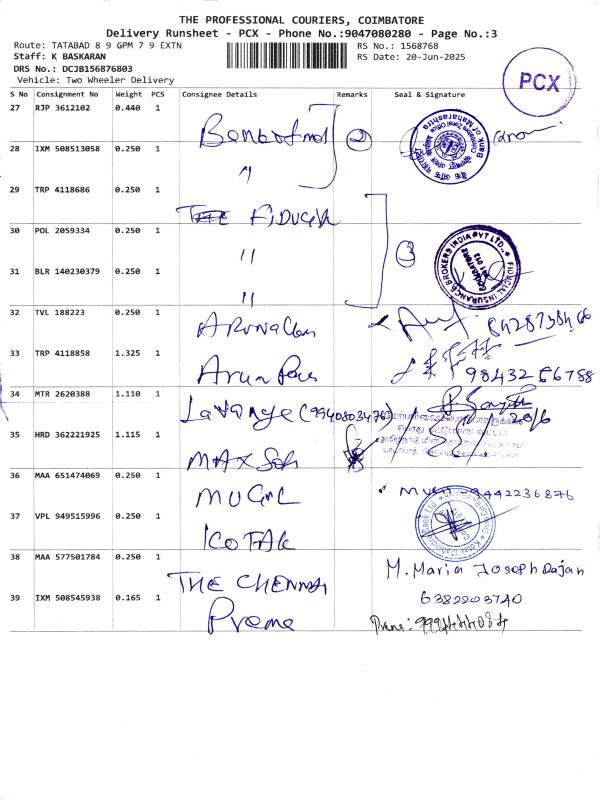 THE PROFESSIONAL COURIERS, COIMBATORE
Delivery Runsheet - PCX - Phone No.:9047080280 - Page No.:3
Route: TATABAD 8 9 GPM 7 9 EXTN
RS No.: 1568768
Staff: K BASKARAN
RS Date: 20-Jun-2025
DRS No.: DCJB156876803
Vehicle: Two Wheeler Delivery
PCX
S No Consignment No Weight PCS Consignee Details Remarks Seal & Signature
27 RJP 3612102 0.440 1
2
28 IXM 508513058 0.250 1 "
29 TRP 4118686 0.250 1
30 POL 2059334 0.250 1 "
3
31 BLR 140230379 0.250 1 "
FIDUCIAL INSURANCE BROKERS INDIA PVT LTD.,
COIMBATORE
641 012
32 TVL 188223 0.250 1
33 TRP 4118858 1.325 1 Arun
34 MTR 2620388 1.110 1 Lavanya
20/6
35 HRD 362221925 1.115 1 MAX
36 MAA 651474069 0.250 1
9442236876
37 VPL 949515996 0.250 1 KOTAK
38 MAA 577501784 0.250 1 THE CHENNAI M. Maria Joseph Rajan
39 IXM 508545938 0.165 1 Prema